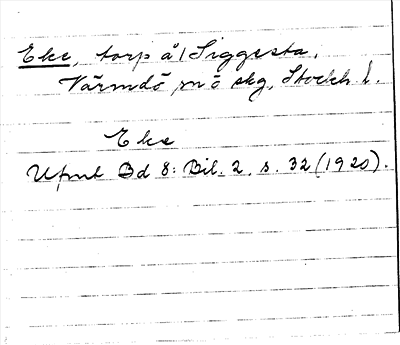 Eke, torp å Siggesta,
Värmdö sn o skg, Stockh. l.
Eke
Ufmt Bd 8: Bil. 2, s. 32 (1920).